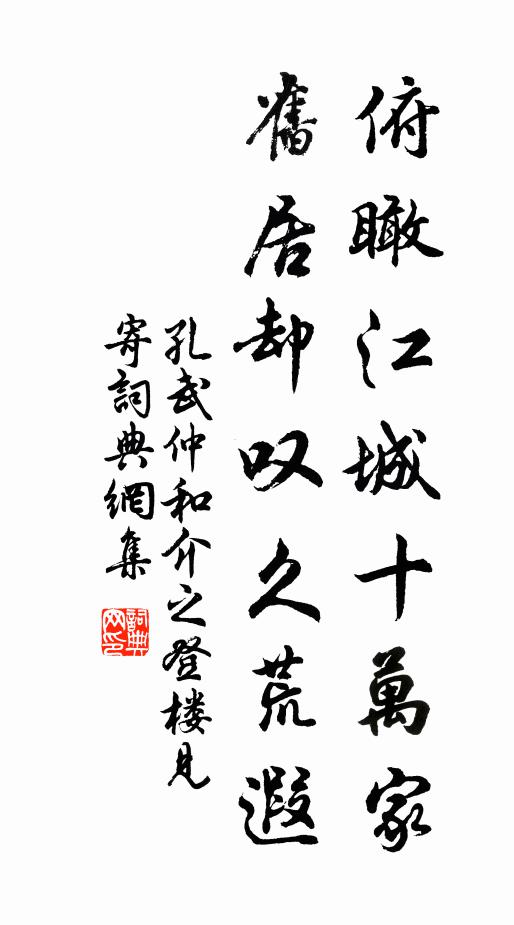 俯瞰江城十萬家
舊居却叹久荒遐
孔武仲和介之登楼見
寄詞典網集
詞典
网印